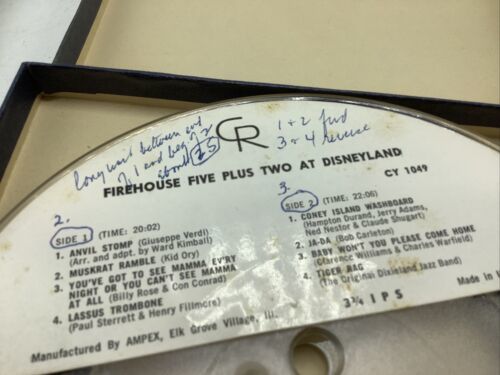 Long wait between end
of 1 and beg. of 2
about 25
CR
1 + 2 fwd
3 + 4 reverse
FIREHOUSE FIVE PLUS TWO AT DISNEYLAND
CY 1049
2.
SIDE 1 (TIME: 20:02)
1. ANVIL STOMP (Giuseppe Verdi)
(Arr. and adpt. by Ward Kimball)
2. MUSKRAT RAMBLE (Kid Ory)
3. YOU'VE GOT TO SEE MAMMA EV'RY
NIGHT OR YOU CAN'T SEE MAMMA
AT ALL (Billy Rose & Con Conrad)
4. LASSUS TROMBONE
(Paul Sterrett & Henry Fillmore)
3.
SIDE 2 (TIME: 22:06)
1. CONEY ISLAND WASHBOARD
(Hampton Durand, Jerry Adams,
Ned Nestor & Claude Shugart)
2. JA-DA (Bob Carleton)
3. BABY WON'T YOU PLEASE COME HOME
(Clarence Williams & Charles Warfield)
4. TIGER RAG
(The Original Dixieland Jazz Band)
3¾ IPS
Manufactured By AMPEX, Elk Grove Village, Ill.
Made in